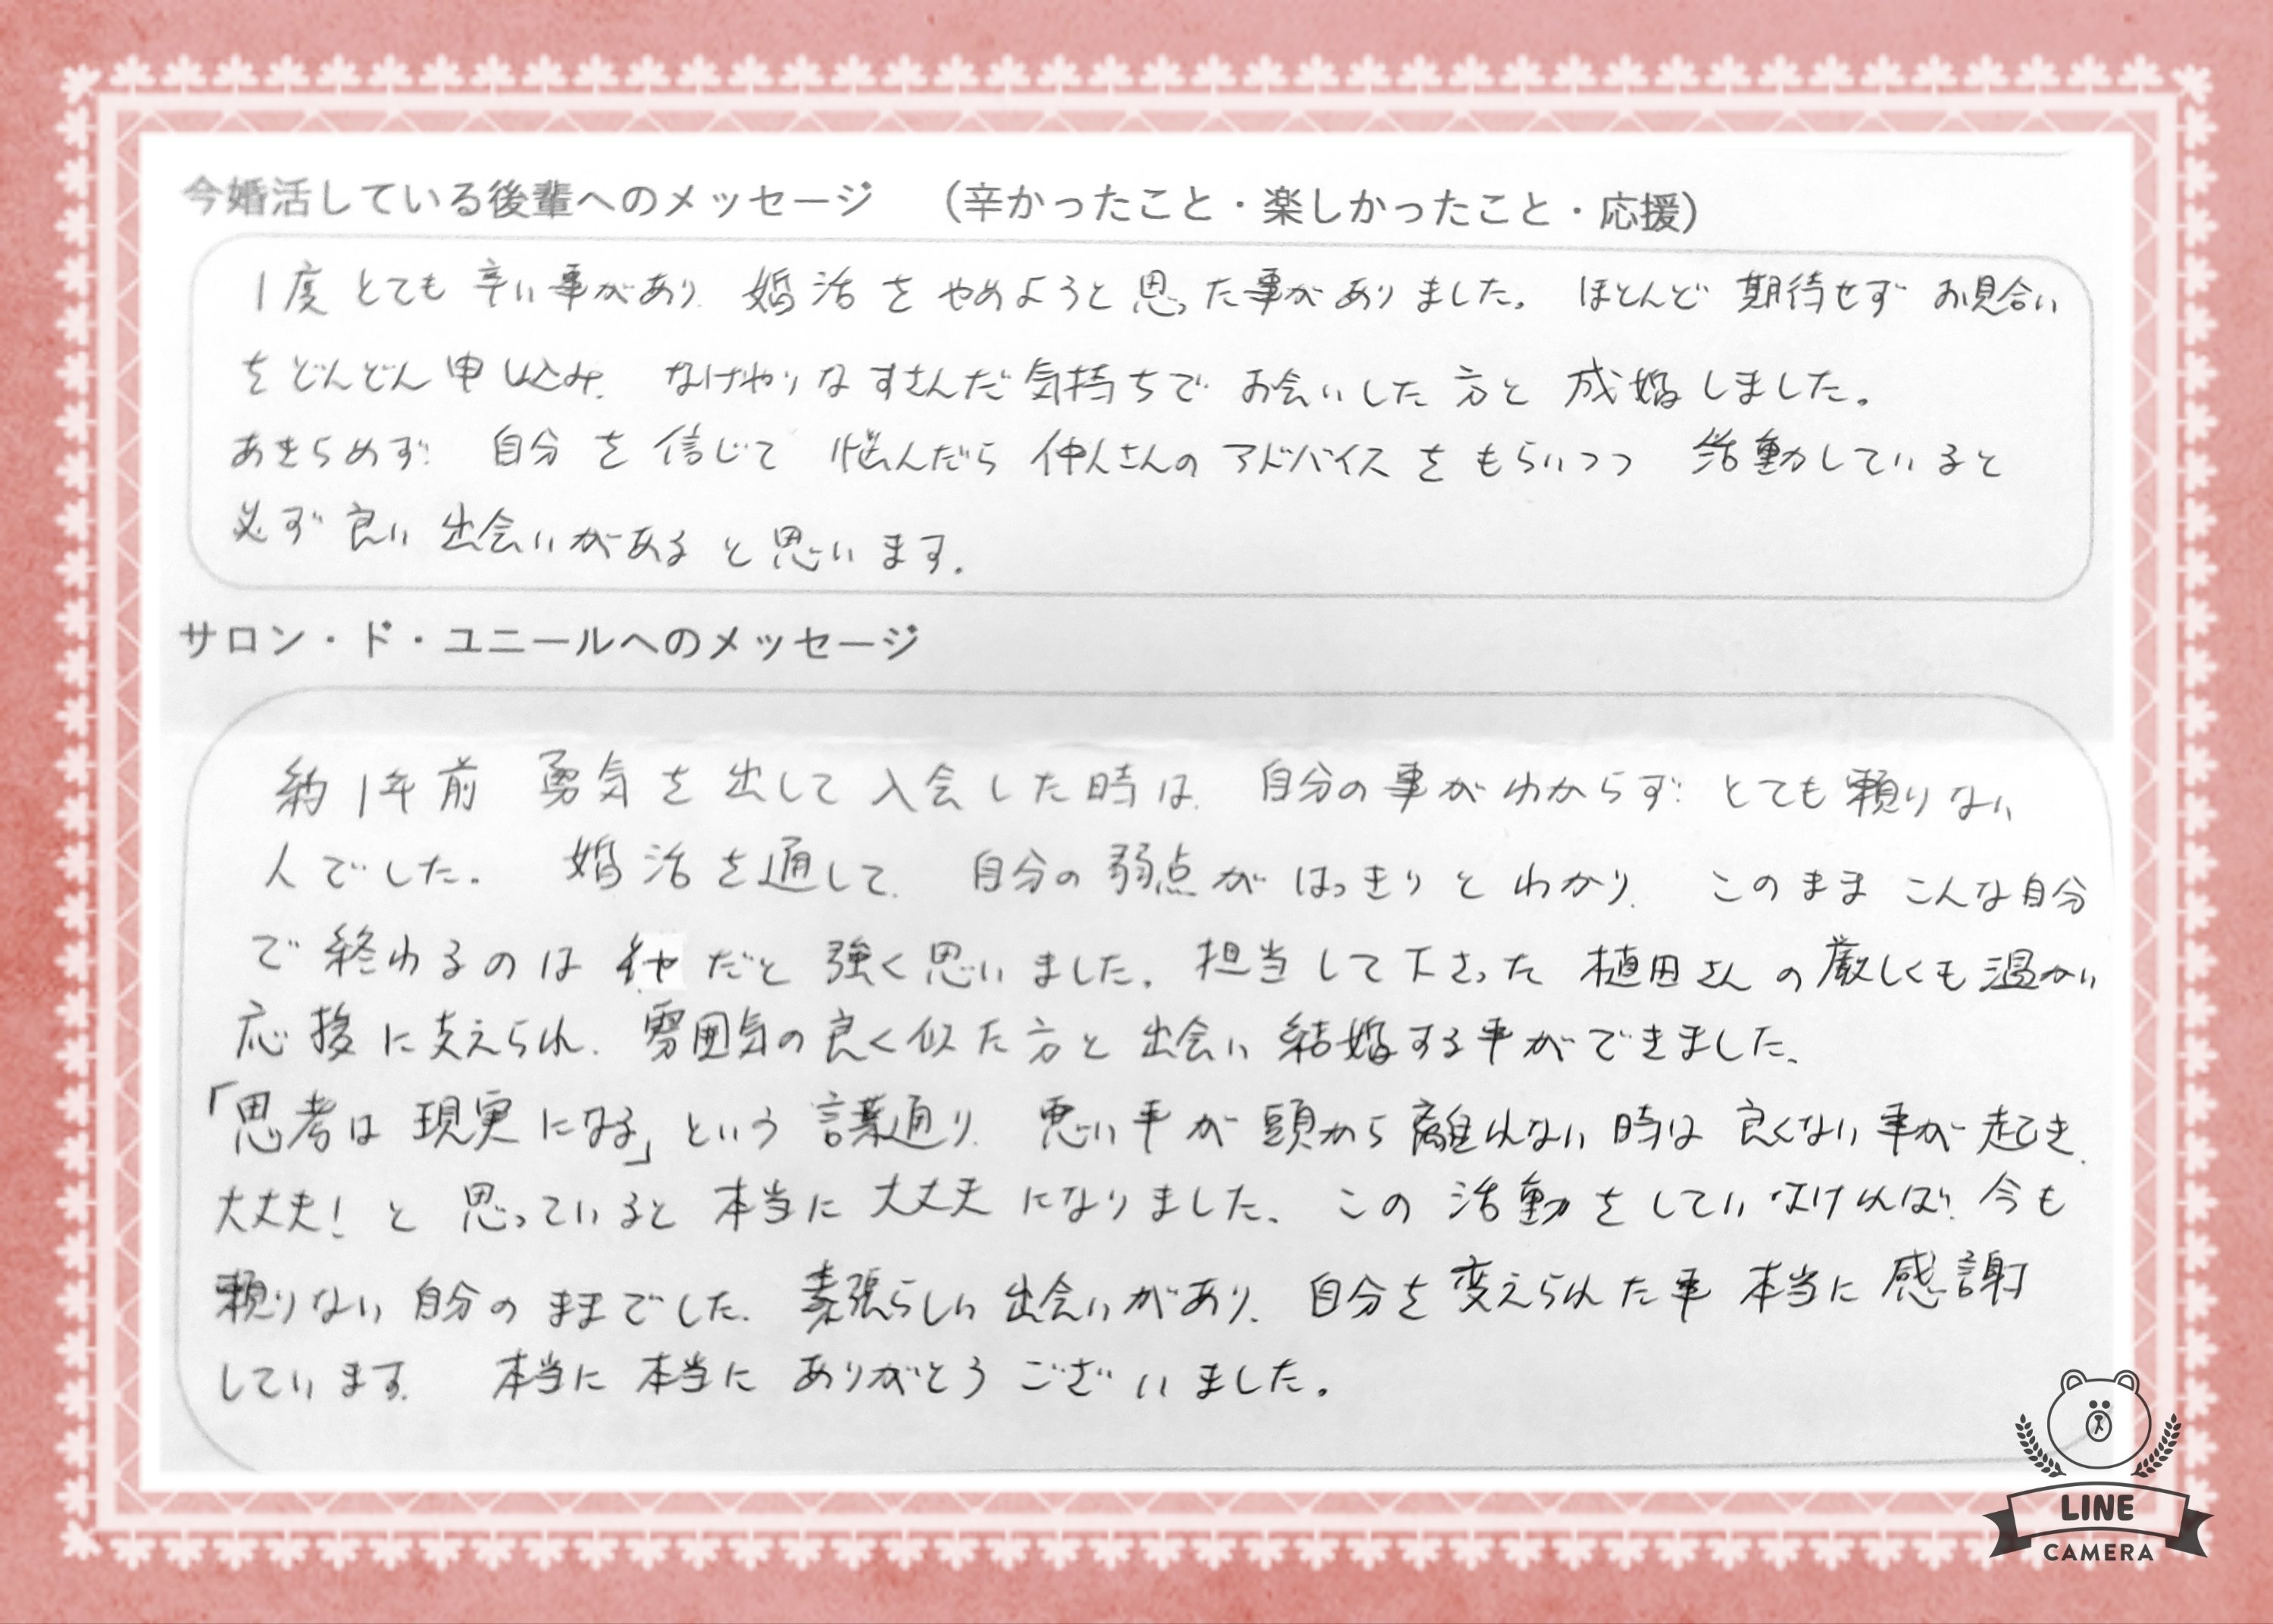 今婚活している後輩へのメッセージ （辛かったこと・楽しかったこと・応援）
1度 とても 辛い事があり、婚活を やめようと思った事がありました。ほとんど 期待せず お見合い
をどんどん申し込み、なげやりな すさんだ気持ちで お会いした 方と 成婚しました。
あきらめず 自分を信じて 悩んだら 仲人さんの アドバイスをもらいつつ 活動していると
必ず良い 出会いがあると思います。
サロン・ド・ユニールへのメッセージ
約1年前 勇気を出して入会した時は、自分の事がわからず とても頼りない
人でした。 婚活を通して、自分の弱点がはっきりとわかり、このまま こんな自分
で終わるのは だと 強く思いました。担当して下さった 植田さんの厳しくも温かい
応援に支えられ、雰囲気の良く似た方と出会い 結婚する事ができました。
「思考は現実になる」という言葉通り、悪い事が頭から離れない時は 良くない事が起き、
大丈夫！と思っていると本当に大丈夫になりました。この活動をしていなければ、今も
頼りない自分のままでした。素張らしい出会いがあり、自分を変えられた事 本当に感謝
しています。 本当に本当に ありがとうございました。
LINE
CAMERA